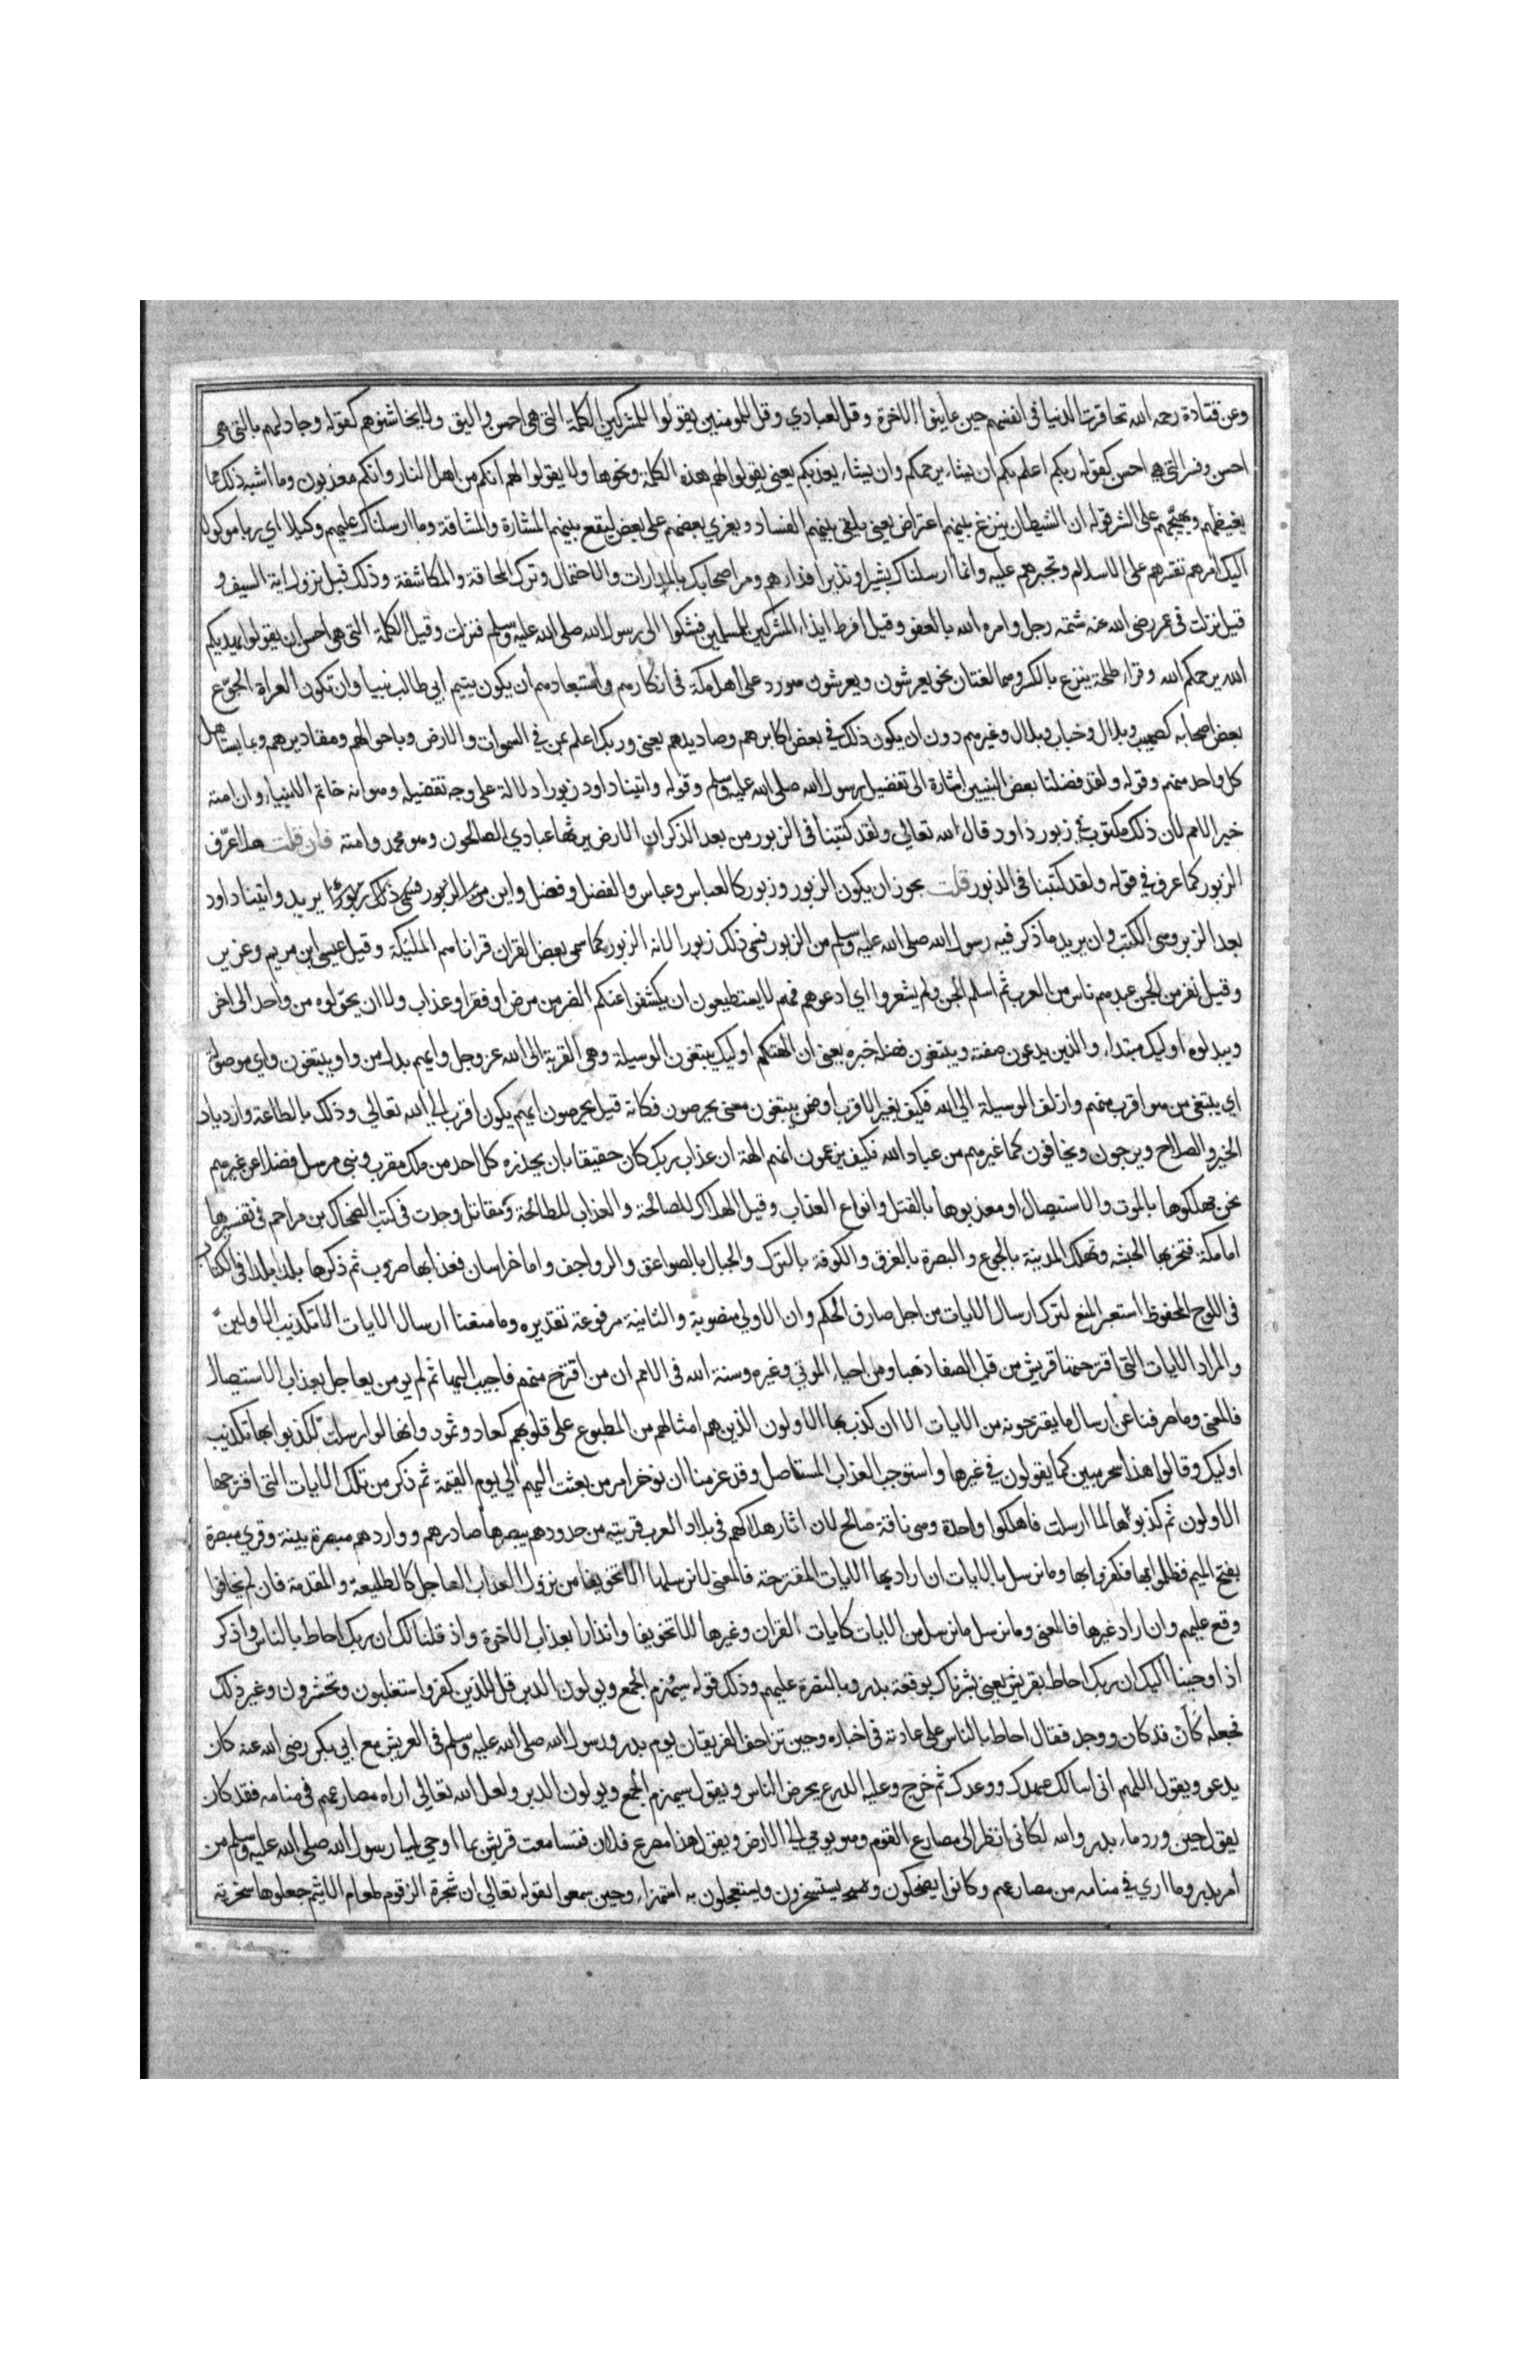 وعن قتادة رحمه الله تحاقرت الدنيا فى انفسهم حين عاينوا الاخرة وقل لعبادي وقل للمومنين يقولوا للمشركين الكلمة التى هى احسن والين ولا يخاشنوهم كقوله وجادلهم بالتى هى
احسن وفسر التى هى احسن بقوله ربكم اعلم بكم ان يشاء يرحمكم وان يشاء يعذبكم يعنى يقولوا لهم هذه الكلمة ونحوها ولا يقولوا لهم انكم من اهل النار وانكم معذبون وما اشبه ذلك مما
يغيظهم ويهيجهم على الشر قوله ان الشيطان ينزغ بينهم اعتراض يعنى يلقى بينهم الفساد ويغري بعضهم على بعض ليقع بينهم المشارة والمشاقة وما ارسلناك عليهم وكيلا اي ربا موكولا
اليك امرهم تقسرهم على الاسلام وتجبرهم عليه وانما ارسلناك بشيرا ونذيرا فدارهم ومر اصحابك بالمدارات والاحتمال وترك المحاقة والمكاشفة وذلك قبل نزول اية السيف و
قيل نزلت فى عمر رضى الله عنه شتمه رجل وامره الله بالعفو وقيل افرط ايذاء المشركين للمسلمين فشكوا الى رسول الله صلى الله عليه وسلم فنزلت وقيل الكلمة التى هى احسن ان يقولوا يهديكم
الله يرحمكم الله وقراء طلحة ينزغ بالكسر وهما لغتان نحو يعرشون ويعرشون هو رد على اهل مكة فى انكارهم واستبعادهم ان يكون يتيم ابي طالب نبيا وان تكون العراة الجوع
بعض اصحابه كصهيب وبلال وخباب وبلال وغيرهم دون ان يكون ذلك في بعض اكابرهم وصناديدهم يعنى وربك اعلم بمن في السموات والارض وباحوالهم ومقاديرهم وبما يستاهل
كل واحد منهم وقوله ولقد فضلنا بعض النبيين اشارة الى تفضيل رسول الله صلى الله عليه وسلم وقوله واتينا داود زبورا دلالة على وجه تفضيله وهو انه خاتم الانبياء وان امته
خير الامم لان ذلك مكتوب في زبور داود قال الله تعالي ولقد كتبنا فى الزبور من بعد الذكر ان الارض يرثها عبادي الصالحون وهو محمد وامته فان قلت هلا عرف
الزبور كما عرف في قوله ولقد كتبنا فى الزبور قلت يجوز ان يكون الزبور وزبور كالعباس وعباس والفضل وفضل واين من الزبور فسمى ذلك زبورا يريد واتينا داود
بعد الزبر وهى الكتب وان يريد ما ذكر فيه رسول الله صلى الله عليه وسلم من الزبور فسمى ذلك زبورا لانه الزبور كما سمى بعض القران قرانا هم الملئكة وقيل عيسى ابن مريم وعزير
وقيل نفر من الجن عبدهم ناس من العرب ثم اسلم الجن ولم يشعروا اي ادعوهم فهم لا يستطيعون ان يكشفوا عنكم الضر من مرض او فقر او عذاب ولا ان يحولوه من واحد الى اخر
ويبدلوه اوليك مبتداء والذين يدعون صفته ويبتغون فهذا خبره يعنى ان الهتكم اوليك يبتغون الوسيلة وهى القربة الى الله عز وجل وايهم بدل من واو يبتغون واي موصولة
اي يبتغى من هو اقرب منهم وازلف الوسيلة الى الله فكيف بغير الاقرب او ضمن يبتغون معنى يحرصون فكانه قيل يحرصون ايهم يكون اقرب الى الله تعالي وذلك بالطاعة وازدياد
الخير والصلاح ويرجون ويخافون كما غيرهم من عباد الله فكيف يزعمون انهم الهة ان عذاب ربك كان حقيقا بان يحذره كل احد من ملك مقرب ونبى مرسل فضلا عن غيرهم
نحن مهلكوها بالموت والاستيصال او معذبوها بالقتل وانواع العذاب وقيل الهلاك للصالحة والعذاب للطالحة وعن مقاتل وجدت فى كتب الضحاك بن مزاحم فى تفسيرها
اما مكة فتخربها الحبشه وتهلك المدينة بالجوع والبصرة بالغرق والكوفة بالترك والجبال بالصواعق والرواجف واما خراسان فعذابها ضروب ثم ذكرها بلدا بلدا فى الكتاب
فى اللوح المحفوظ استعير المنع لترك ارسال الايات من اجل صارف الحكم وان الاولي منصوبة والثانية مرفوعة تقديره وما منعنا ارسال الايات الا تكذيب الاولين
والمراد الايات التى اقترحتها قريش من قلب الصفا ذهبا ومن احياء الموتي وغيره وسنة الله فى الامم ان من اقترح منهم فاجيب اليها ثم لم يومن يعاجل بعذاب الاستيصال
فالمعنى وما صرفنا عن ارسال ما يقترحونه من الايات الا ان كذب بها الاولون الذين هم امثالهم من المطبوع على قلوبهم كعاد وثمود وانها لو ارسلت لكذبوا بها تكذيب
اوليك وقالوا هذا سحر مبين كما يقولون في غيرها واستوجب العذاب المستاصل وقد عزمنا ان نوخر امر من بعثت اليهم الى يوم القيمة ثم ذكر من تلك الايات التى اقترحها
الاولون ثم كذبوا بها لما ارسلت فاهلكوا واحدة وهى ناقة صالح لان اثار هلاكهم فى بلاد العرب قريبة من حدودهم يبصرها صادرهم وواردهم مبصرة بينة وقري مبصرة
بفتح الميم فظلموا بها فكفروا بها وما نرسل بالايات ان اراد بها الايات المقترحة فالمعنى لا نرسلها الا تخويفا من نزول العذاب العاجل كالطليعة والمقدمة فان لم يخافوا
وقع عليهم وان اراد غيرها فالمعنى وما نرسل ما نرسل من الايات كايات القران وغيرها الا تخويفا وانذارا بعذاب الاخرة واذ قلنا لك ان ربك احاط بالناس واذكر
اذ اوحينا اليك ان ربك احاط بقريش يعنى بشرناك بوقعة بدر وبالنصرة عليهم وذلك قوله سيهزم الجمع ويولون الدبر قل للذين كفروا ستغلبون وتحشرون وغير ذلك
فجعله كان قد كان ووجد فقال احاط بالناس على عادته فى اخباره وحين تزاحف الفريقان يوم بدر ورسول الله صلى الله عليه وسلم فى العريش مع ابي بكر رضى الله عنه كان
يدعو ويقول اللهم انى اسالك عهدك ووعدك ثم خرج وعليه الدرع يحرض الناس ويقول سيهزم الجمع ويولون الدبر ولعل الله تعالي اراه مصارعهم فى منامه فقد كان
يقول حين ورد ماء بدر والله لكانى انظر الى مصارع القوم وهو يومي الى الارض ويقول هذا مصرع فلان فتسامعت قريش بما اوحي الى رسول الله صلى الله عليه وسلم من
امر بدر وما اري في منامه من مصارعهم وكانوا يضحكون ويستسخرون ويستعجلون به استهزاء وحين سمعوا بقوله تعالي ان شجرة الزقوم طعام الاثيم جعلوها سخرية